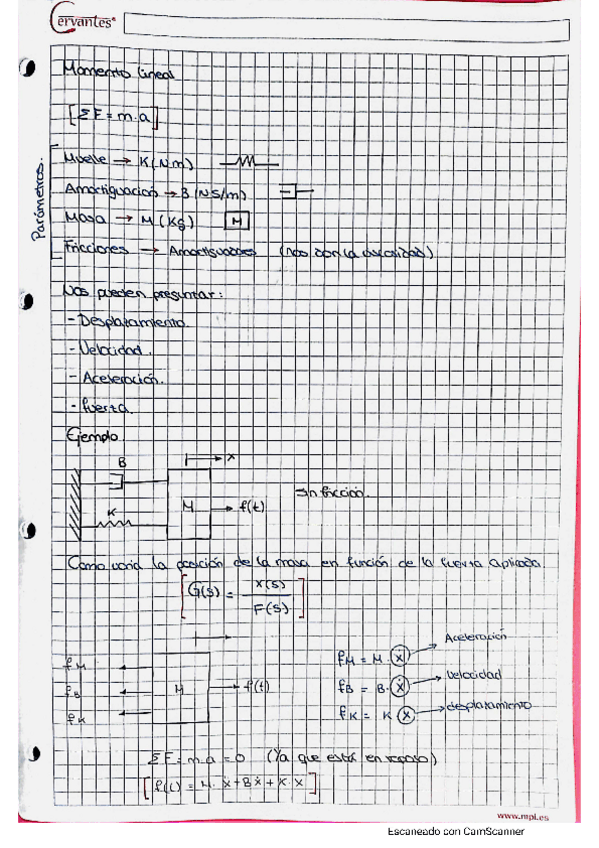 Cervantes®
Momento lineal
[ΣF = m.a]
Parámetros.
Muelle → K (N.m)
Amortiguación → B (NS/m)
Masa → M (Kg) M
Fricciones → Amortiguadores
Nos pueden preguntar:
- Desplazamiento.
- Velocidad.
- Aceleración.
- fuerza.
Ejemplo.
x
B
K
M
f(t)
sin fricción.
Como varía la posición de la masa en función de la fuerza aplicada.
[G(s) = X(s) / F(s)]
fM
fB
fK
M
f(t)
fM = M. ẍ → Aceleración
fB = B. ẋ → Velocidad
fK = K x → desplazamiento
ΣF = m.a = 0 (Ya que está en reposo)
[f(t) = M. ẍ + B ẋ + K. x]
www.mpl.es
Escaneado con CamScanner